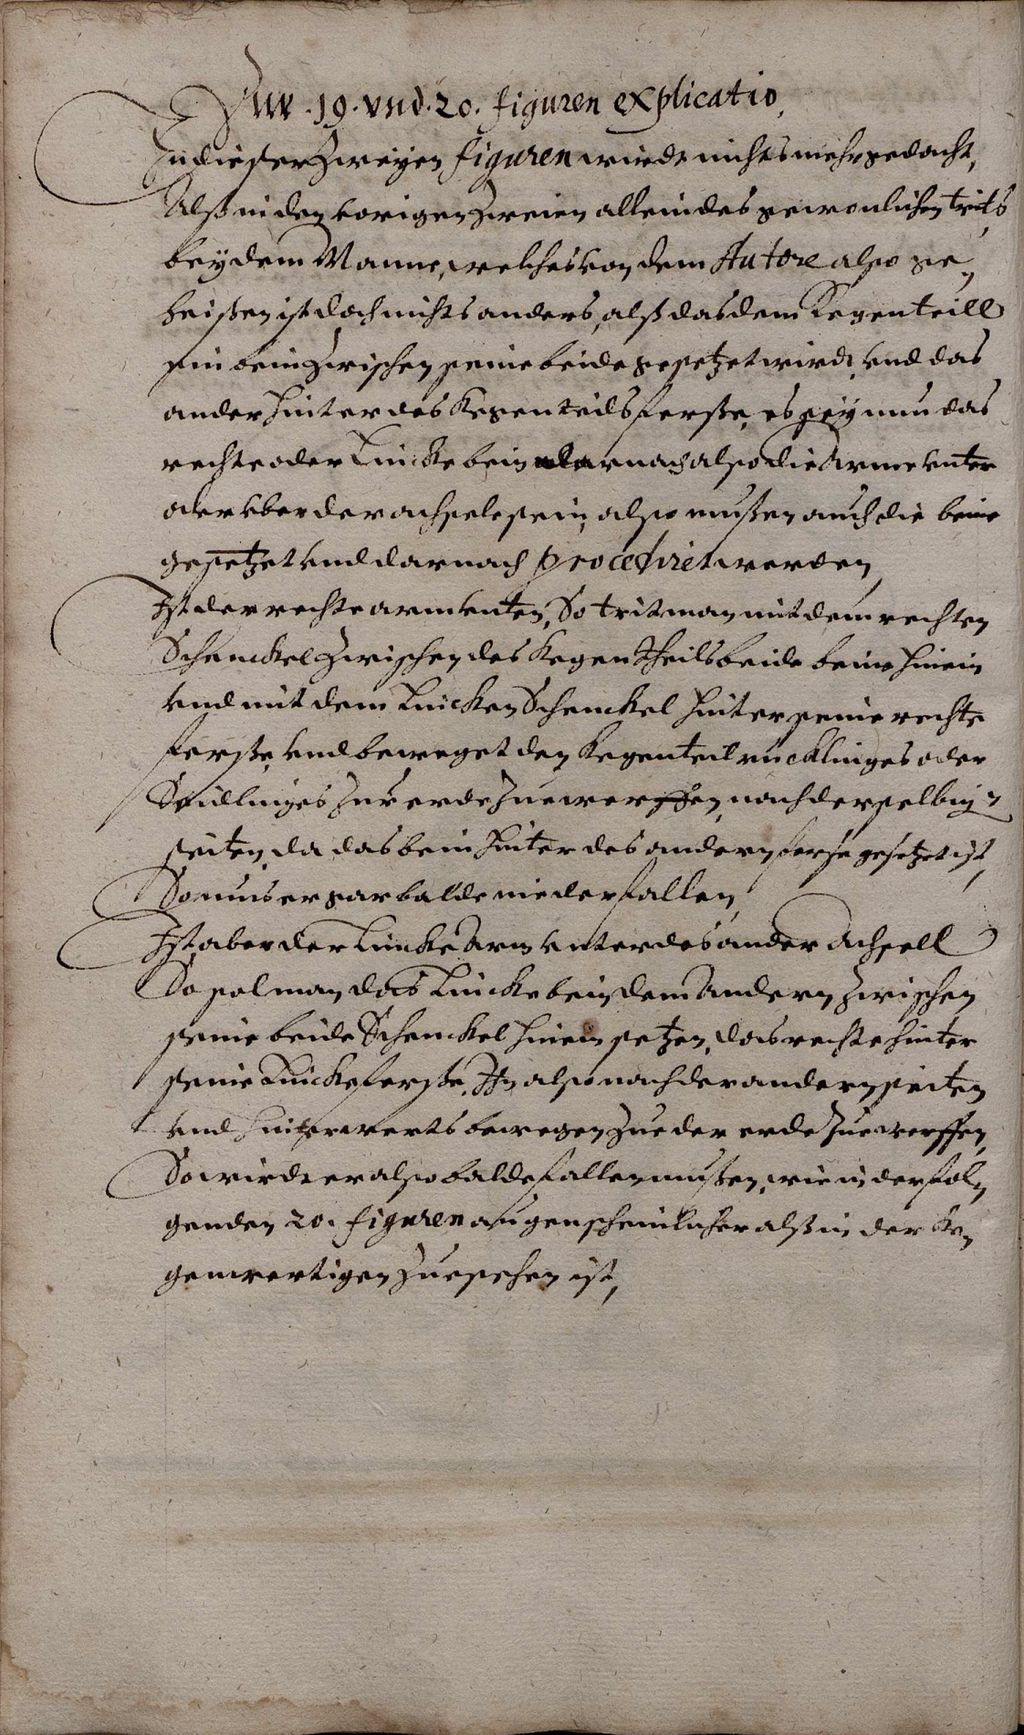 Der .19. vnd .20. figuren explicatio,
In dieser zweyen figuren wirdt nichts mehr gedacht,
Alß in den vorigen zweien allein des gewonlichen trits
bey dem Manne, welches von dem Autore also ge„
heißen ist doch nichts anders, alß das dem Kegenteill
ein bein zwischen seine beide gesetzet wirdt, vnd das
ander hinter des Kegenteils ferße, es sey nun das
rechte oder Lincke bein darnach also die Arme vnter
oder vber der achsele sein, also mußen auch die beine
gesetzet vnd darnach procediret werden,
Ist der rechte arm vnten, So trit man mit dem rechten
Schenckel zwischen des Kegentheils beide beine hinein
vnd mit dem Lincken Schenckel hinter seine rechte
ferße, vnd beweget den Kegenteil rucklinges oder
Seidlinges zur erde zue werffen, nach derselbigen
seiten, da das bein hinter des andern ferse gesetzet ist,
So mus er gar balde niederfallen,
Ist aber der Lincke Arm vnter des ander Achsell
So sol man das Lincke bein dem Andern zwischen
seine beide Schenckel hinein setzen, das rechte hinter
seine Lincke ferße, Ihn also nach der andern seiten
vnd hinterwerts bewegen zue der erde zue werffen,
So wirdt er also balde fallen mußen, wie in der fol„
genden 20. figuren augenscheinlicher alß in der Ke„
genwertigen zue sehen ist,